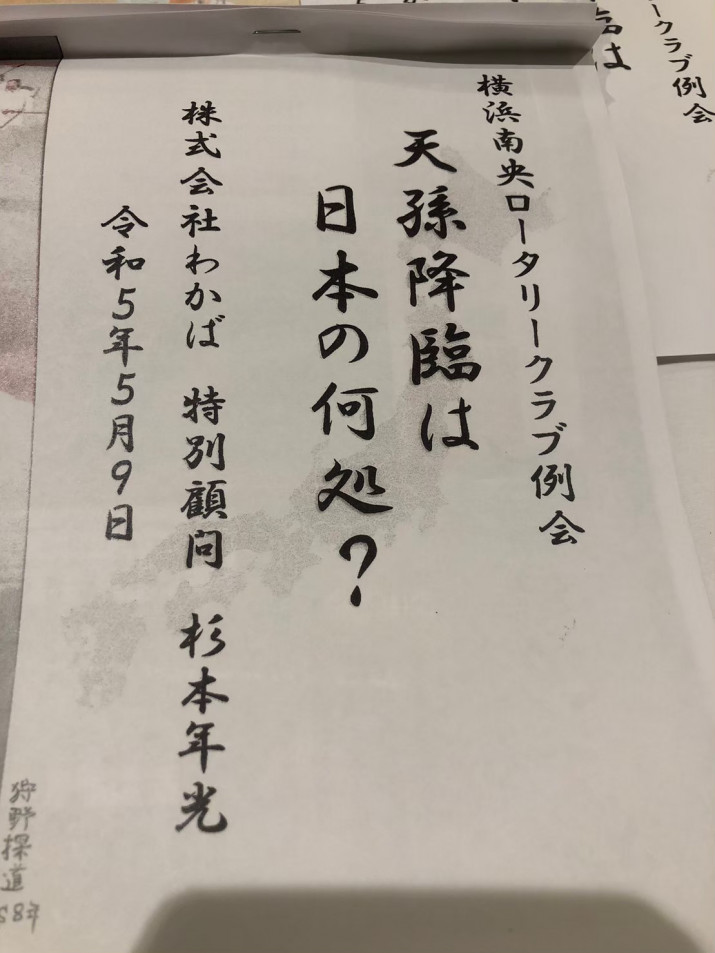 横浜南央ロータリークラブ例会
天孫降臨は
日本の何処？
株式会社わかば　特別顧問　杉本年光
令和５年５月９日
ークラブ例会
臨は
狩野探道
58年